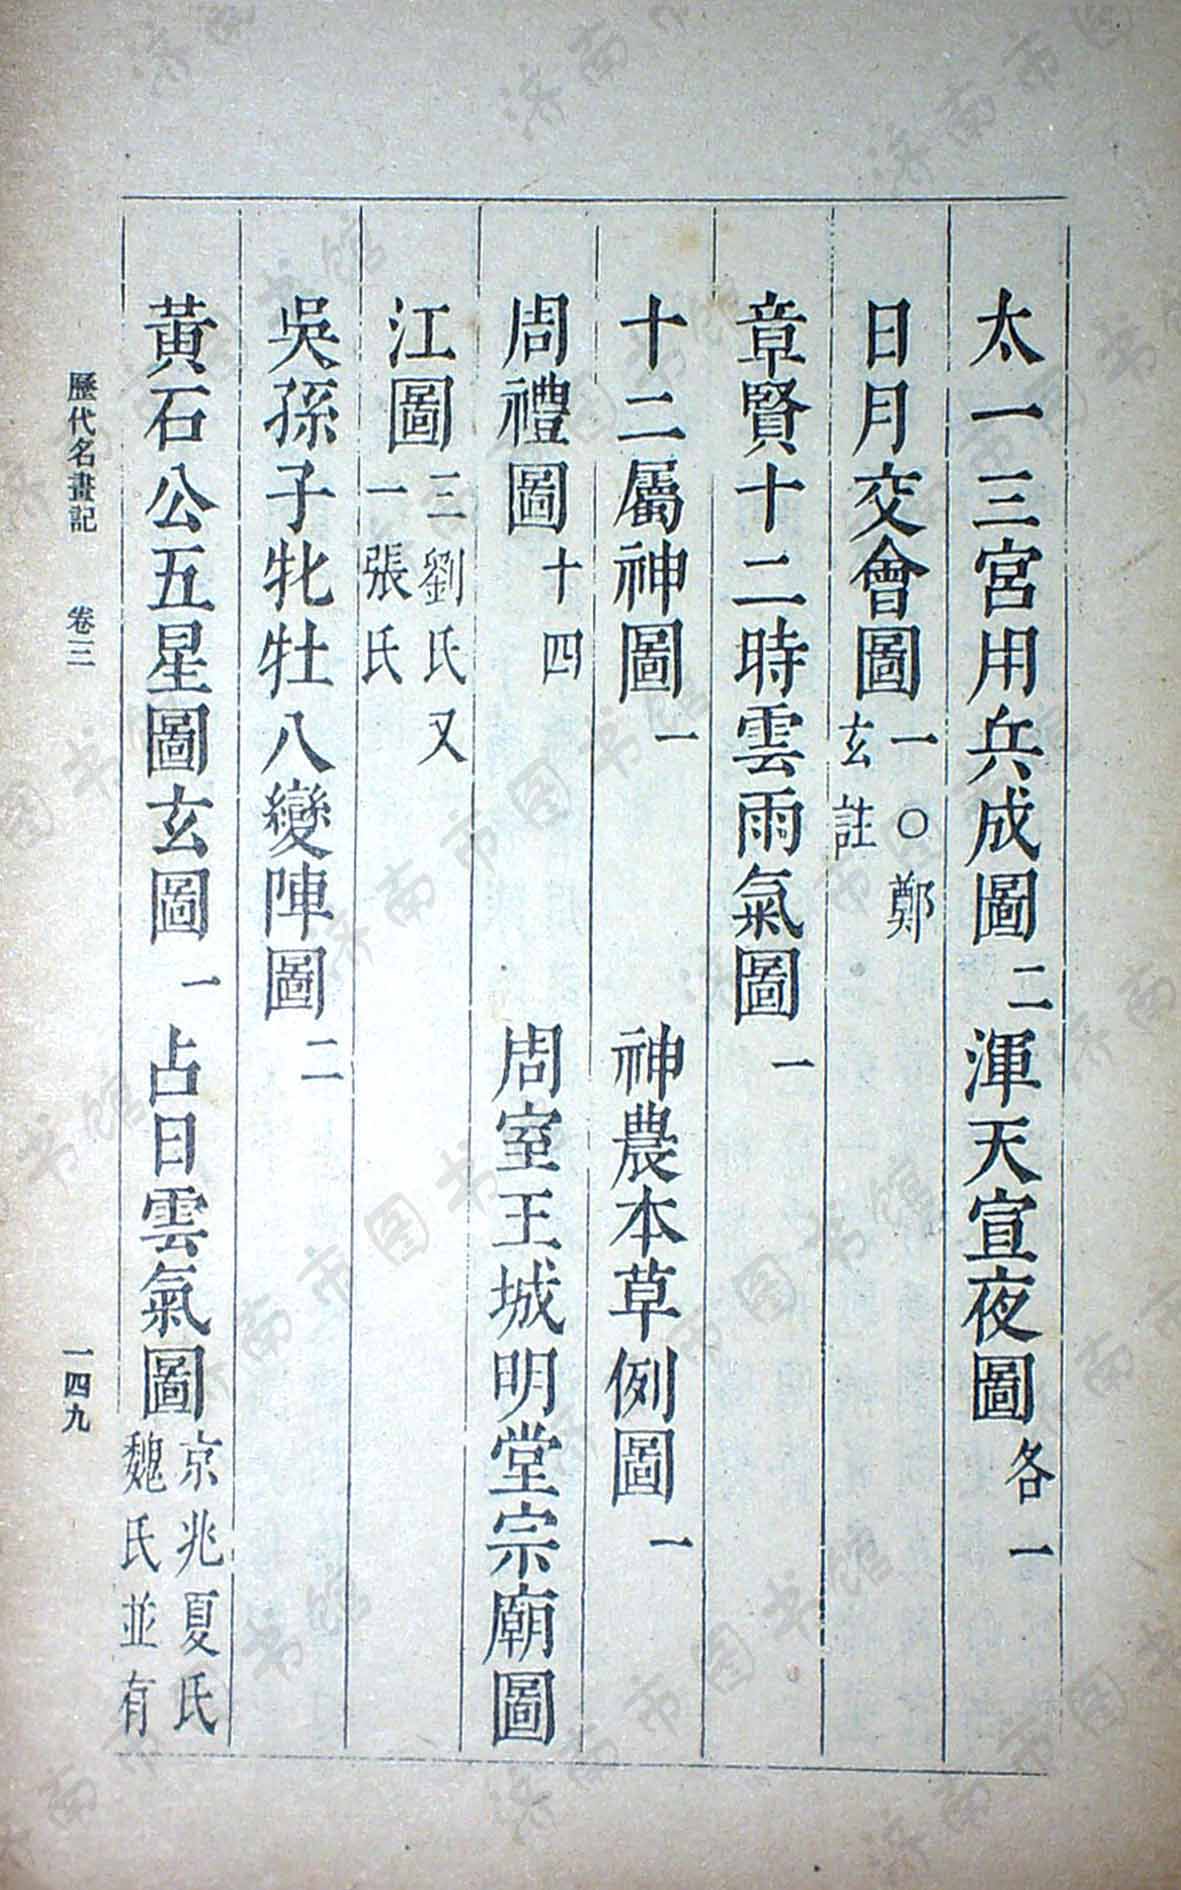 太一三宮用兵成圖二渾天宣夜圖各一
日月交會圖一○鄭玄註
章賢十二時雲雨氣圖一
十二屬神圖一 神農本草例圖一
周禮圖十四 周室王城明堂宗廟圖
江圖三劉氏又一張氏
吳孫子牝牡八變陣圖二
黃石公五星圖玄圖一 占日雲氣圖京兆夏氏魏氏並有
歷代名畫記 卷三 一四九
济南市图书馆